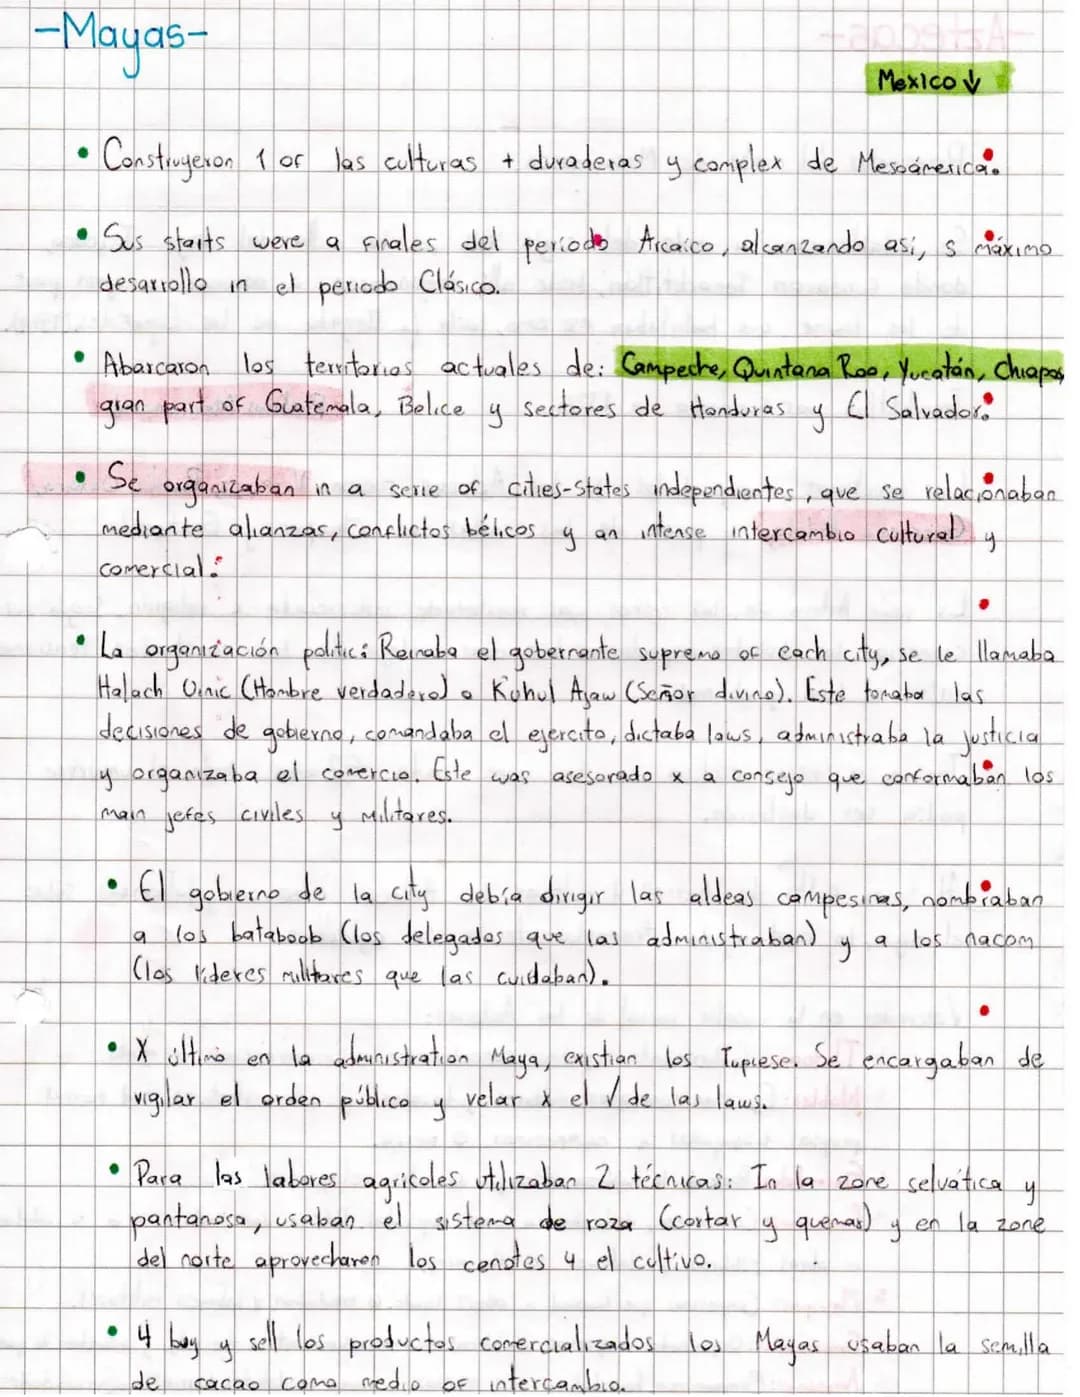 -Mayas-
Mexico ↓
• Construyeron 1 of las culturas + duraderas y complex de Mesoámerica.
• Sus starts were a finales del periodo Arcaico, alcanzando así, s máximo
desarrollo in el periodo Clásico.
• Abarcaron los territorios actuales de: Campeche, Quintana Roo, Yucatán, Chiapas
gran part of Guatemala, Belice y sectores de Honduras y El Salvador.
• Se organizaban in a serie of cities-States independientes, que se relacionaban
mediante alianzas, conflictos bélicos y an intense intercambio cultural y
comercial.
• La organización politic: Reinaba el gobernante supremo of each city, se le llamaba
Halach Uinic (Hombre verdadero) o Kuhul Ajaw (Señor divino). Este tomaba las
decisiones de gobierno, comandaba el ejercito, dictaba laws, administraba la justicia
y organizaba el comercio. Este was asesorado x a consejo que conformaban los
main jefes civiles y militares.
• El gobierno de la city debía dirigir las aldeas campesinas, nombraban
a los bataboob (los delegados que las administraban) y a los nacom
(los líderes militares que las cuidaban).
• X último en la administration Maya, existian los Tupiese. Se encargaban de
vigilar el orden público y velar x el √ de las laws.
• Para las labores agricoles utilizaban 2 técnicas: In la zone selvática y
pantanosa, usaban el sistema de roza (cortar y quemar) y en la zone
del norte aprovecharon los cenotes 4 el cultivo.
• 4 buy y sell los productos comercializados los Mayas usaban la semilla
de cacao como medio of intercambio.